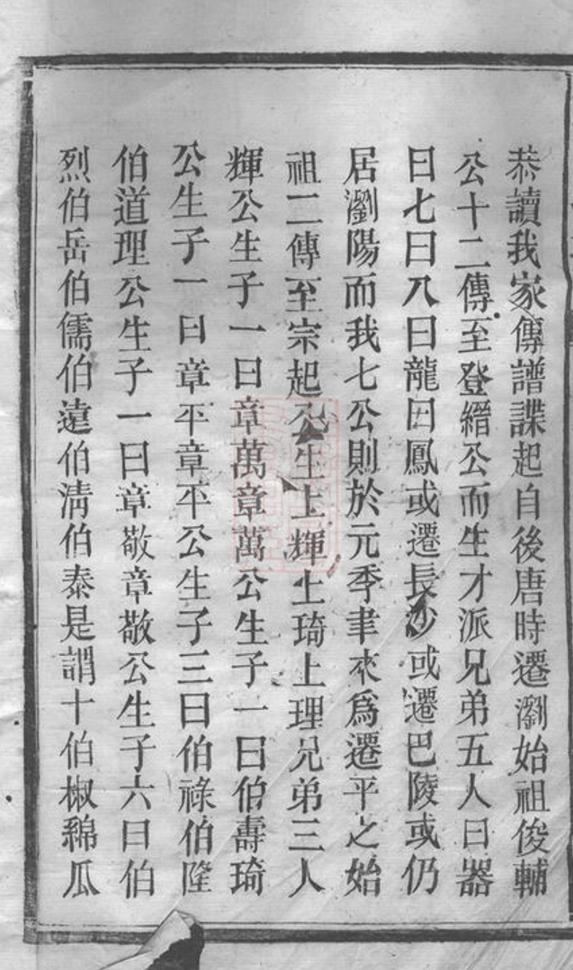 恭讀我家傳譜諜起自後唐時遷瀏始祖俊輔
公十二傳至登縉公而生才派兄弟五人曰器
曰七曰八曰龍曰鳳或遷長沙或遷巴陵或仍
居瀏陽而我七公則於元季聿來爲遷平之始
祖二傳至宗起公生上輝上琦上理兄弟三人
輝公生子一曰章萬章萬公生子一曰伯壽琦
公生子一曰章平章平公生子三曰伯祿伯隆
伯道理公生子一曰章敬章敬公生子六曰伯
烈伯岳伯儒伯遠伯清伯泰是謂十伯椒綿瓜